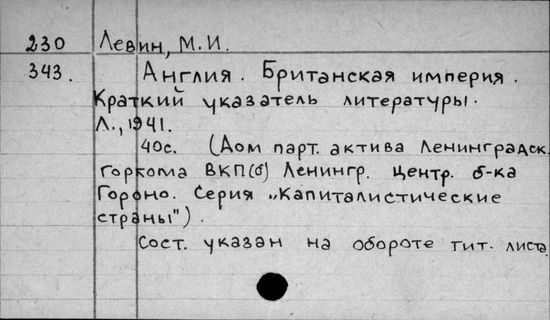 230 Левин, М.И.
343. Англия. Британская империя.
Краткий указатель литературы.
Л., 1941.
40с. (Дом парт. актива Ленинградск.
горкома ВКП(б) Ленингр. центр. б-ка
Гороно. Серия „Капиталистические
страны").
Сост. указан на обороте тит. листа